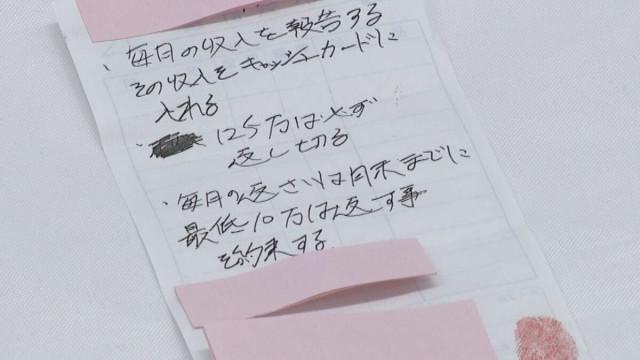 ・毎月の収入を報告する
その収入をキャッシュカードに
入れる
・125万は必ず
返し切る
・毎月の返さいは月末までに
最低10万は返す事
を約束する